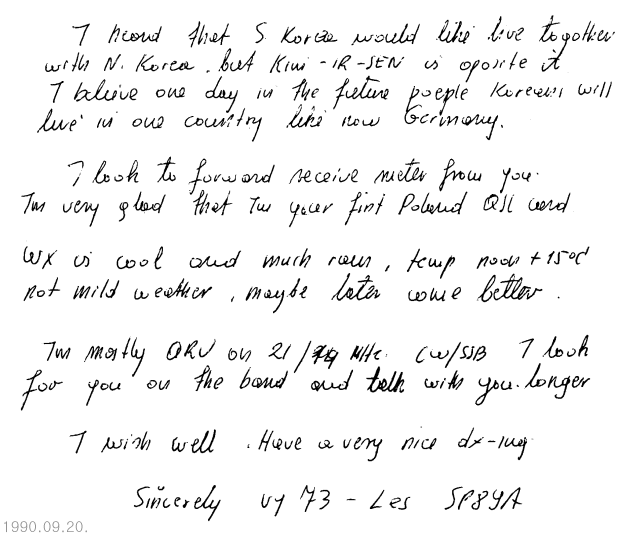 I heard that S Korea would like live together
with N. Korea, but Kim-IR-SEN is oposite it
I belive one day in the future poeple Koreans will
live in one country like now Germany.
I look to forward receive meter from you.
I'm very glad that I'm your first Poland QSL card
WX is cool and much rain, temp noon +15°C
not mild weather, maybe later come better.
I'm mostly QRV on 21/14 MHz. CW/SSB I look
for you on the band and talk with you longer
I wish well. Have a very nice dx-ing
Sincerely vy 73 - Les SP89YA
1990.09.20.